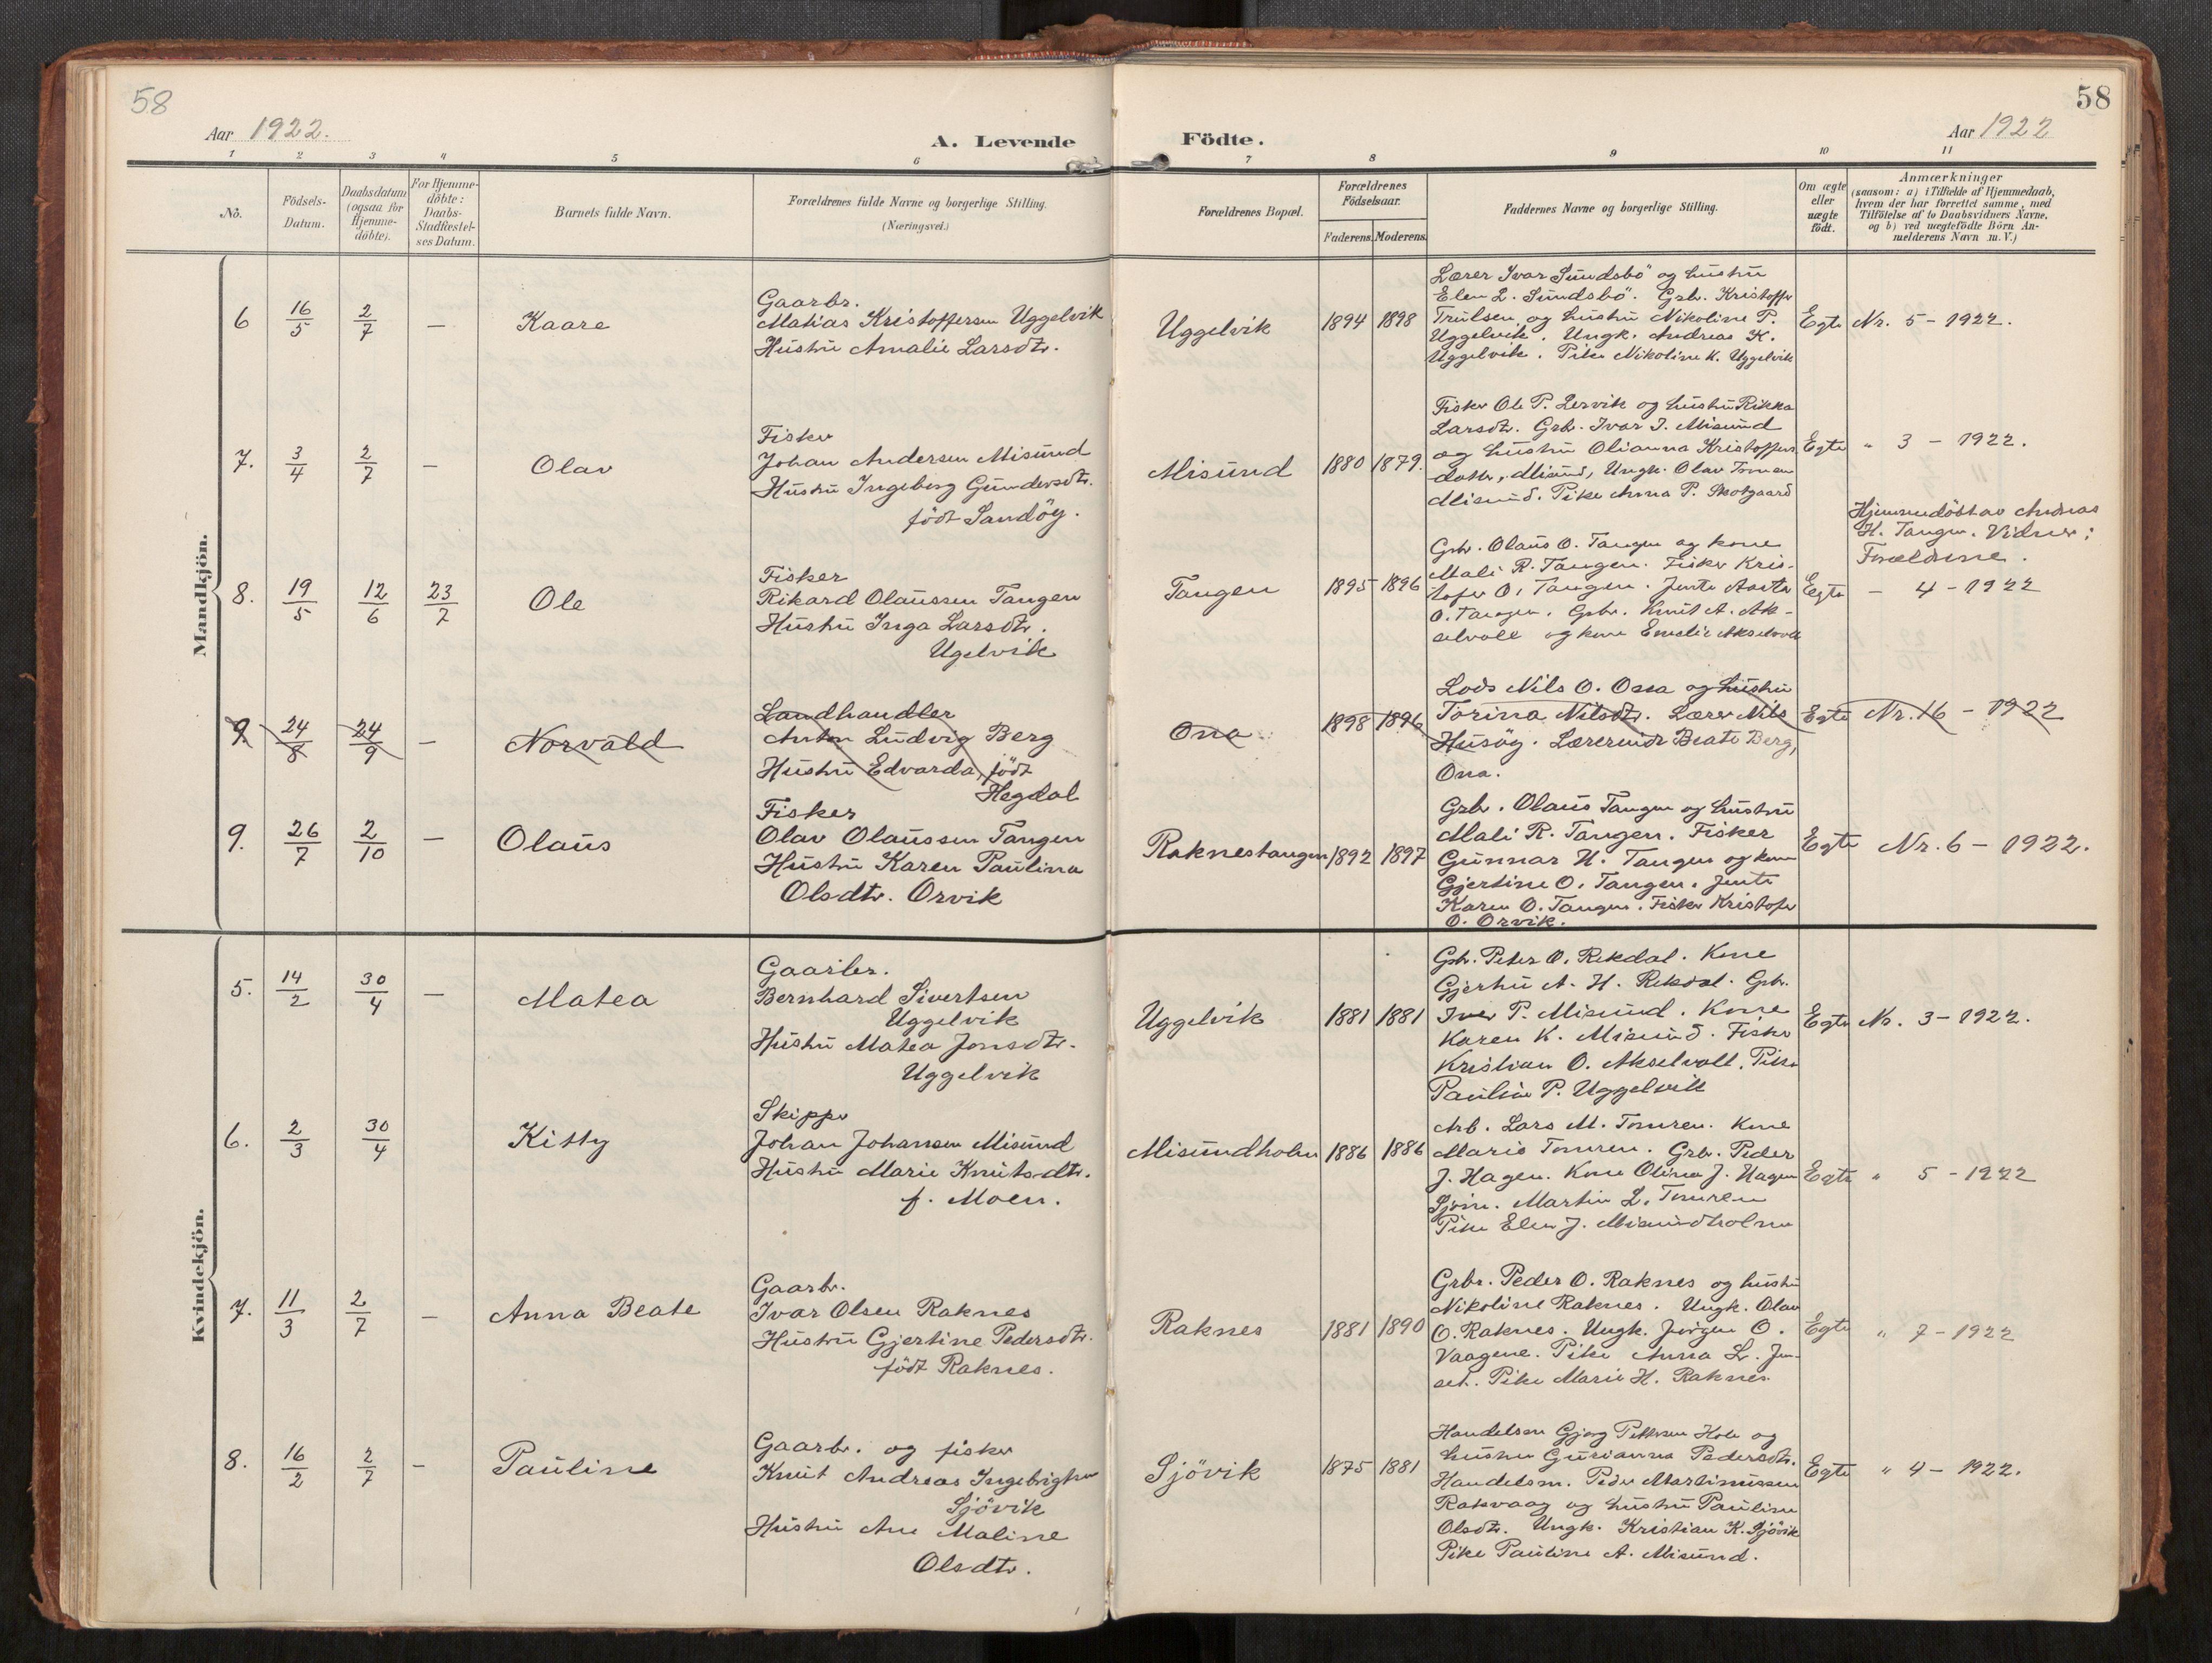 58
58
Aar 1922.
A. Levende
Födte.
Aar 1922
1 2 3 4 5 6 7 8 9 10 11
No.
Födsels-
Datum.
Daabsdatum
(ogsaa for
Hjemme-
döbte).
For Hjemme-
döbte:
Daabs-
Stadfæstel-
ses Datum.
Barnets fulde Navn.
Forældrenes fulde Navne og borgerlige Stilling.
(Næringsvei.)
Forældrenes Bopæl.
Forældrenes
Födselsaar.
Faderens. Moderens.
Faddernes Navne og borgerlige Stilling.
Om ægte
eller
uægte
födt.
Anmærkninger
(saasom: a) i Tilfælde af Hjemmedaab,
hvem der har forrettet samme, med
Tilföielse af to Daabsvidners Navne,
og b) ved uægtefödte Börn An-
melderens Navn m. V.)
Mandkjön.
6 16/5 2/7 — Kaare
Gaarbr.
Matias Kristoffersen Uggelvik
Hustru Amalie Larsdtr.
Uggelvik 1894 1898
Lærer Ivar Sundsbö og hustru
Elen L. Sundsbö. Grb. Kristoffer
Trulsen og hustru Nikoline P.
Uggelvik. Ungk. Andreas K.
Uggelvik. Pike Nikoline K. Uggelvik
Egte Nr. 5 - 1922.
7. 3/4 2/7 — Olav
Fisker
Johan Andersen Misund
Hustru Ingeborg Gundersdtr.
födt Sandöy.
Misund 1880 1879.
Fisker Ole P. Lervik og hustru Rikka
Larsdtr. Grb. Ivar J. Misund
og hustru Olianna Kristoffers
datter, Misund, Ungk. Olav
Misund. Pike Anna P. Skotgaard
Egte " 3 - 1922.
8. 19/5 12/6 23/7 Ole
Fisker
Rikard Olaussen Tangen
Hustru Inga Larsdtr.
Ugelvik
Tangen 1895 1896
Grb. Olaus O. Tangen og kone
Mali R. Tangen. Fisker Kris-
tofer O. Tangen. Jente
O. Tangen. Grb. Knut A. Ak-
selvoll og kone Emelie Akselvoll
Egte
Hjemmedöbt av Andreas
H. Tangen. Vidner:
Forældrene.
- 4 - 1922
9. 24/8 24/9 — Norvald
Landhandler
Anton Ludvig Berg
Hustru Edvarda, födt
Hegdal
Ona 1898 1896
Lods Nils O. Ona og hustru
Torina Nilsdtr. Lærer Nils
Husöy. Lærerinde Beate Berg,
Ona.
Egte Nr. 16 - 1922
9. 26/7 2/10 — Olaus
Fisker
Olav Olaussen Tangen
Hustru Karen Paulina
Olsdtr. Orvik
Raknestangen 1892 1897
Grb. Olaus Tangen og hustru
Mali R. Tangen. Fisker
Gunnar H. Tangen og kone
Gjertine O. Tangen. Jente
Karen O. Tangen. Fisker Kristofer
O. Orvik.
Egte Nr. 6 - 1922.
Kvindekjön.
5. 14/2 30/4 — Matea
Gaarbr.
Bernhard Sivertsen
Uggelvik
Hustru Matea Jonsdtr.
Uggelvik
Uggelvik 1881 1881
Grb. Peter O. Rekdal. Kone
A. H. Rekdal. Grb.
Iver P. Misund. Kone
Karen K. Misund. Fisker
Kristian O. Akselvoll. Pike
Pauline P. Uggelvik
Egte Nr. 3 - 1922.
6. 2/3 30/4 Kitty
Skipper
Johan Johansen Misund
Hustru Marie Knutsdtr.
f. Moen.
Misundholm 1886 1886
Arb. Lars M. Tomren. Kone
Marie Tomren. Grb. Peder
J. Hagen. Kone Olina J. Hagen
Sjöm. Martin L. Tomren
Pike Elen J. Misundholm
Egte " 5 - 1922
7. 11/3 2/7 — Anna Beate
Gaarbr.
Ivar Olsen Raknes
Hustru Gjertine Pedersdtr.
födt Raknes.
Raknes 1881 1890
Grbr. Peder O. Raknes og hustru
Nikoline Raknes. Ungk. Olav
O. Raknes. Ungk. Jörgen O.
Vaagene. Pike Anna L. Jen-
set. Pike Marie H. Raknes.
Egte " 7 - 1922
8. 16/2 2/7 — Pauline
Gaarbr. og fisker
Knut Andreas Ingebrigtsen
Sjövik
Hustru Ane Maline
Olsdtr.
Sjövik 1875 1881
Handelsm Gjörg Pettersen Hole og
hustru Gurianna Pedersdtr.
Handelsm. Peder Martinussen
Rakvaag og hustru Pauline
Olsdtr. Ungk. Kristian K. Sjövik
Pike Pauline A. Misund.
Egte " 4 - 1922.